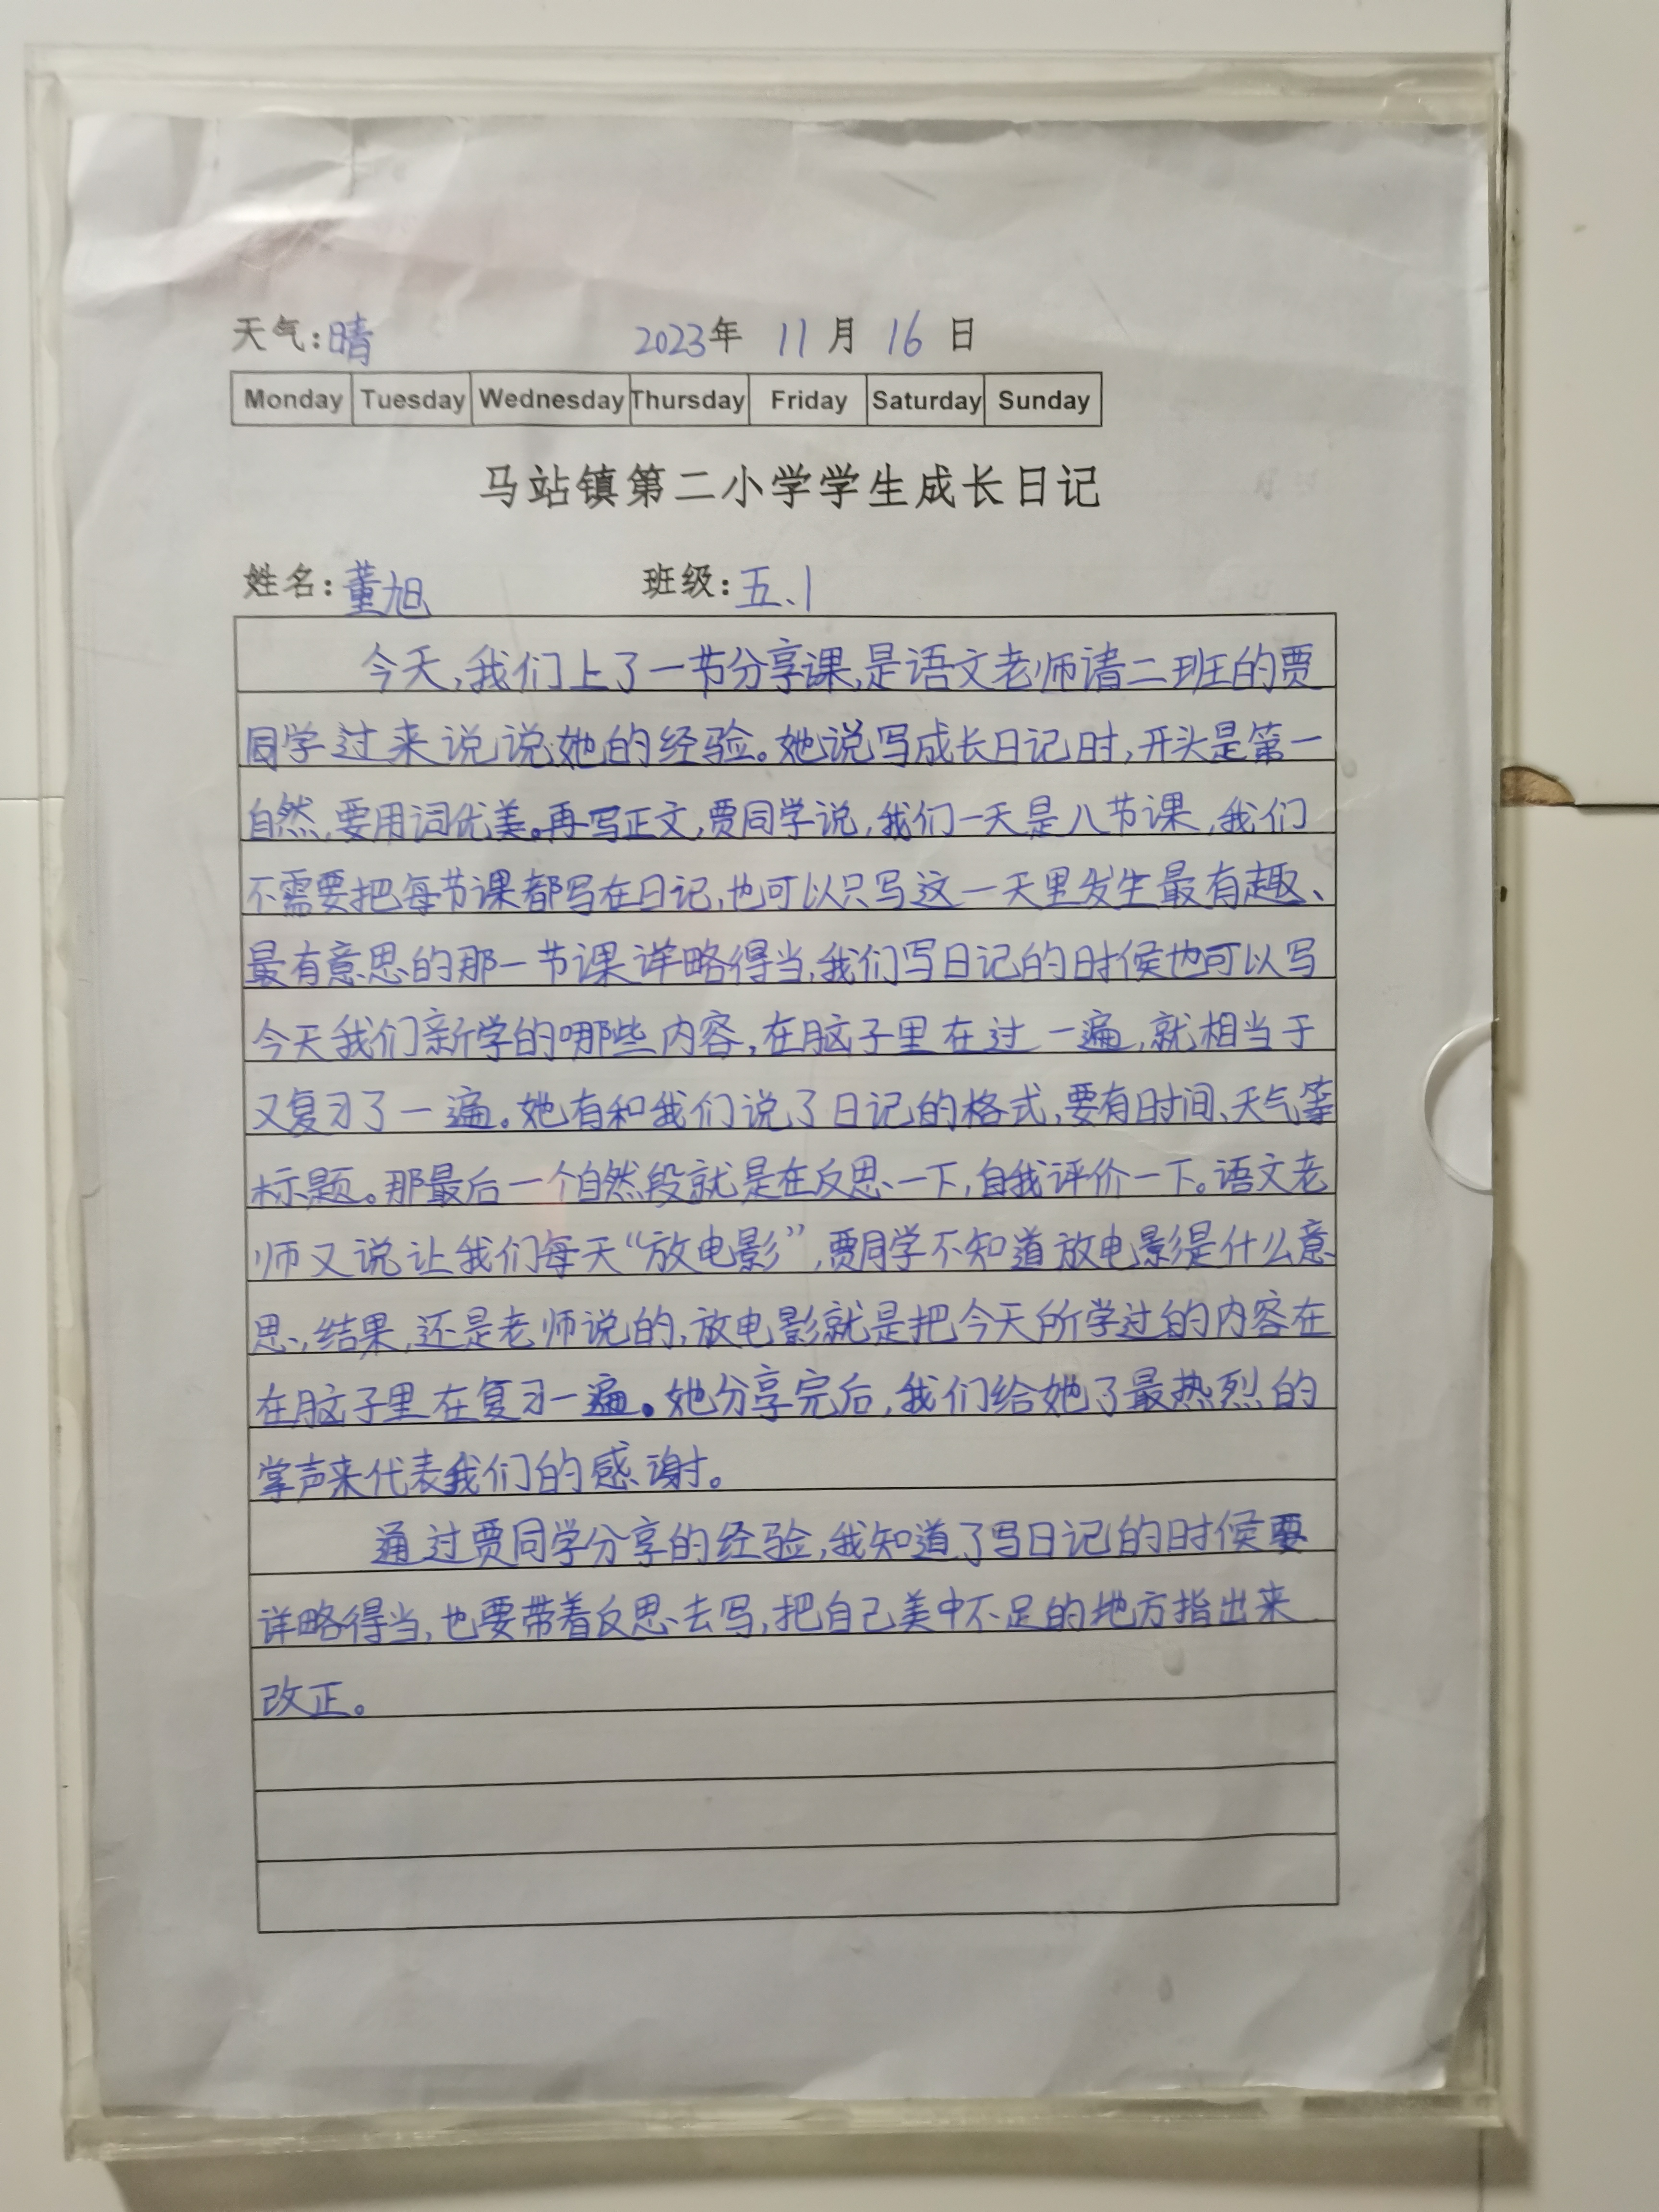 天气:晴 2023年 11月 16日
Monday Tuesday Wednesday Thursday Friday Saturday Sunday
马站镇第二小学学生成长日记
姓名:董旭 班级:五、1
今天,我们上了一节分享课,是语文老师请二班的贾
同学过来说说她的经验。她说写成长日记时,开头是第一
自然,要用词优美。再写正文,贾同学说,我们一天是八节课,我们
不需要把每节课都写在日记,也可以只写这一天里发生最有趣、
最有意思的那一节课详略得当,我们写日记的时候也可以写
今天我们新学的哪些内容,在脑子里在过一遍,就相当于
又复习了一遍。她有和我们说了日记的格式,要有时间、天气等
标题。那最后一个自然段就是在反思一下,自我评价一下。语文老
师又说让我们每天“放电影”,贾同学不知道放电影是什么意
思,结果,还是老师说的,放电影就是把今天所学过的内容在
在脑子里在复习一遍。她分享完后,我们给她了最热烈的
掌声来代表我们的感谢。
通过贾同学分享的经验,我知道了写日记的时候要
详略得当,也要带着反思去写,把自己美中不足的地方指出来
改正。